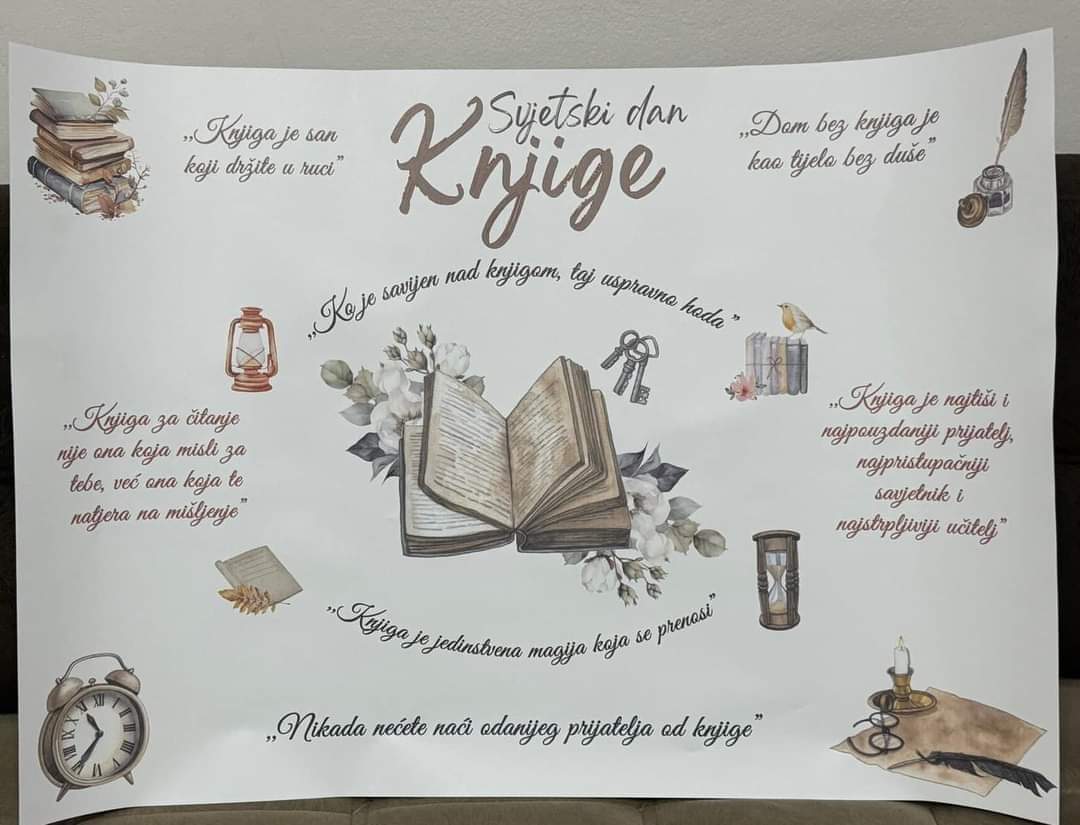 Svjetski dan
Knjige
„Knjiga je san
koji držite u ruci”
„Dom bez knjiga je
kao tijelo bez duše”
„Ko je savijen nad knjigom, taj uspravno hoda”
„Knjiga za čitanje
nije ona koja misli za
tebe, već ona koja te
natjera na mišljenje”
„Knjiga je najtiši i
najpouzdaniji prijatelj,
najpristupačniji
savjetnik i
najstrpljiviji učitelj”
„Knjiga je jedinstvena magija koja se prenosi”
„Nikada nećete naći odanijeg prijatelja od knjige”